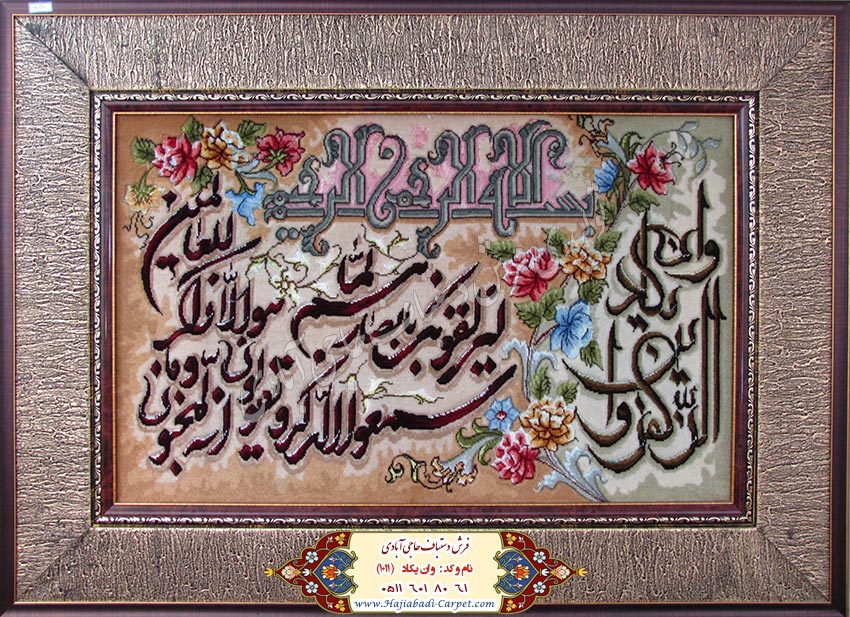 بسم الله الرحمن الرحیم
وان یکاد
الذین کفروا
لیزلقونک بابصارهم لما
سمعوا الذکر و یقولون
انه لمجنون و ما
هو الا ذکر
للعالمین
فرش دستباف حاجی آبادی
نام و کد: وان یکاد (۱۰۱۱)
۰۵۱۱ ۶۰۱ ۸۰ ۶۱
www.Hajiabadi-Carpet.com